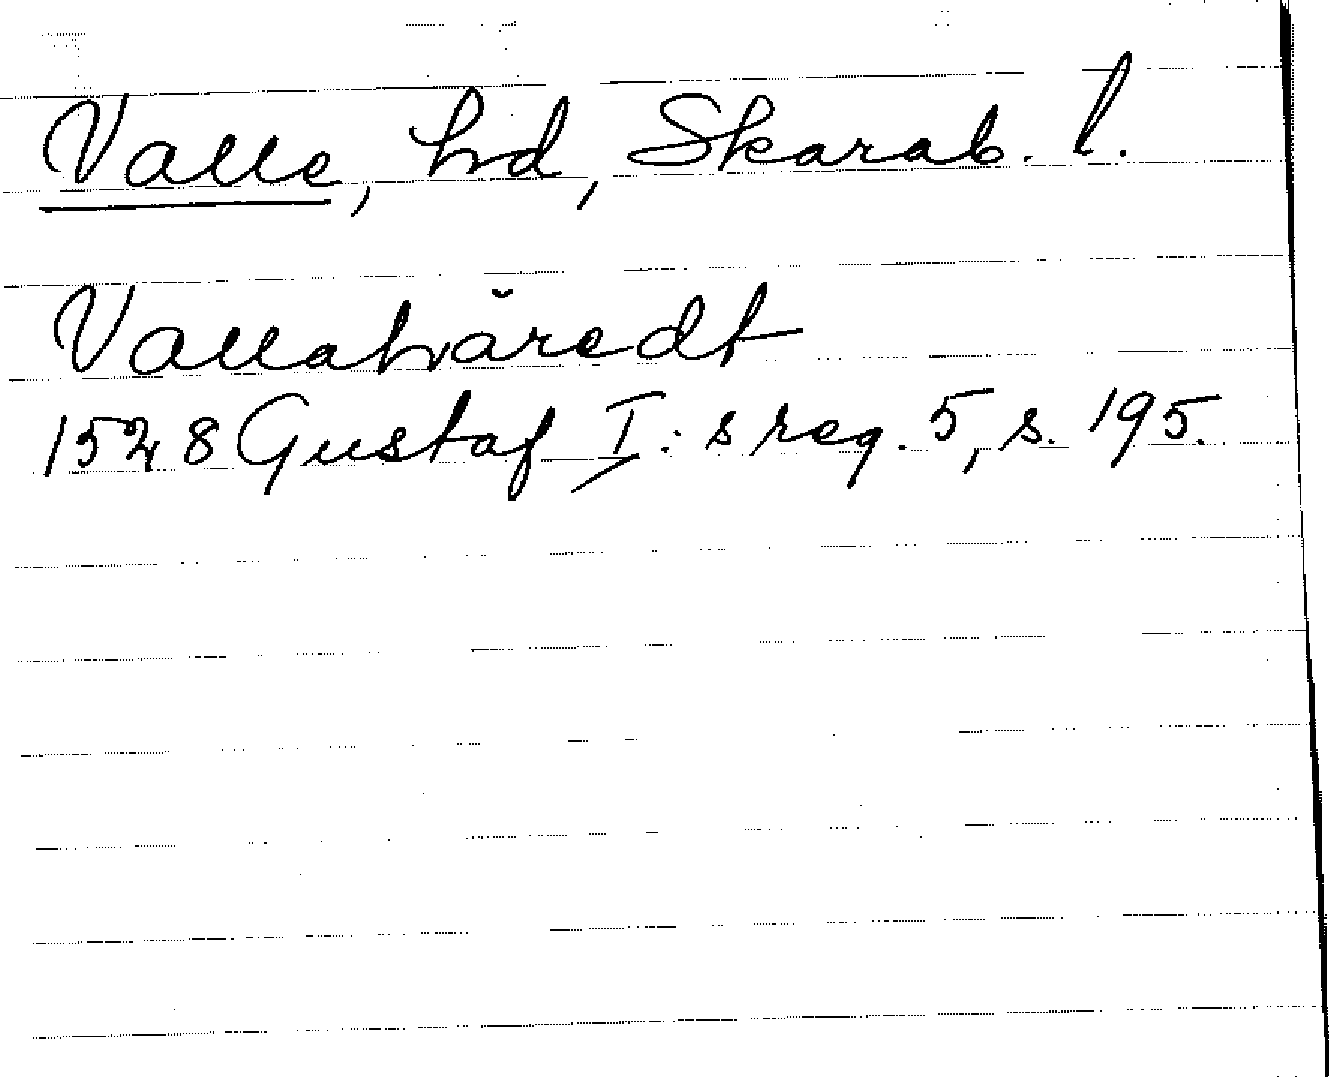 Valle, hd, Skarab. l.
Vallahăredt
1528 Gustaf I: s reg. 5, s. 195.